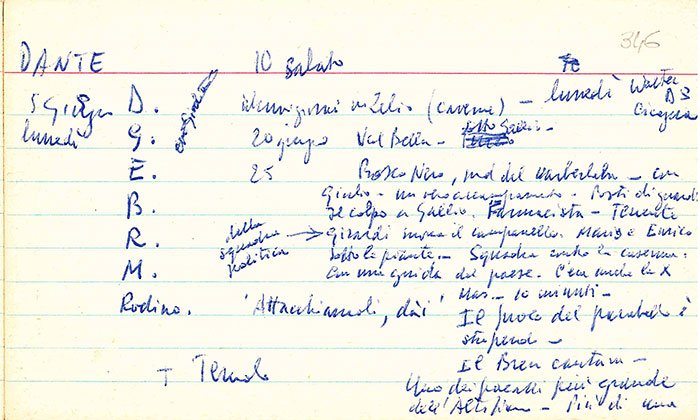 346
DANTE 10 sabato
5 Giugno D. alcuni giorni a Zelio (caverne) - lunedì Walter
lunedì G. 20 giugno Val Bella - sotto Gallio -
E. 25 Bosco Nero, nord del - con
Giulio - un vero accampamento - Posti di guardia
B. Il colpo a Gallio. Farmacista - Tenente
R. della squadra politica → Girardi suona il campanello. Mario e Enrico
M. sotto le piante. - Squadra contro la caserma:
con una guida del paese. C'era anche la X
Rodino. 'Attacchiamoli, dai' Mas - 10 minuti -
Il fuoco del parabello è
stupendo -
Il Bren cantava -
T Uno dei paesi più grande
dell'Altipiano - Più di una